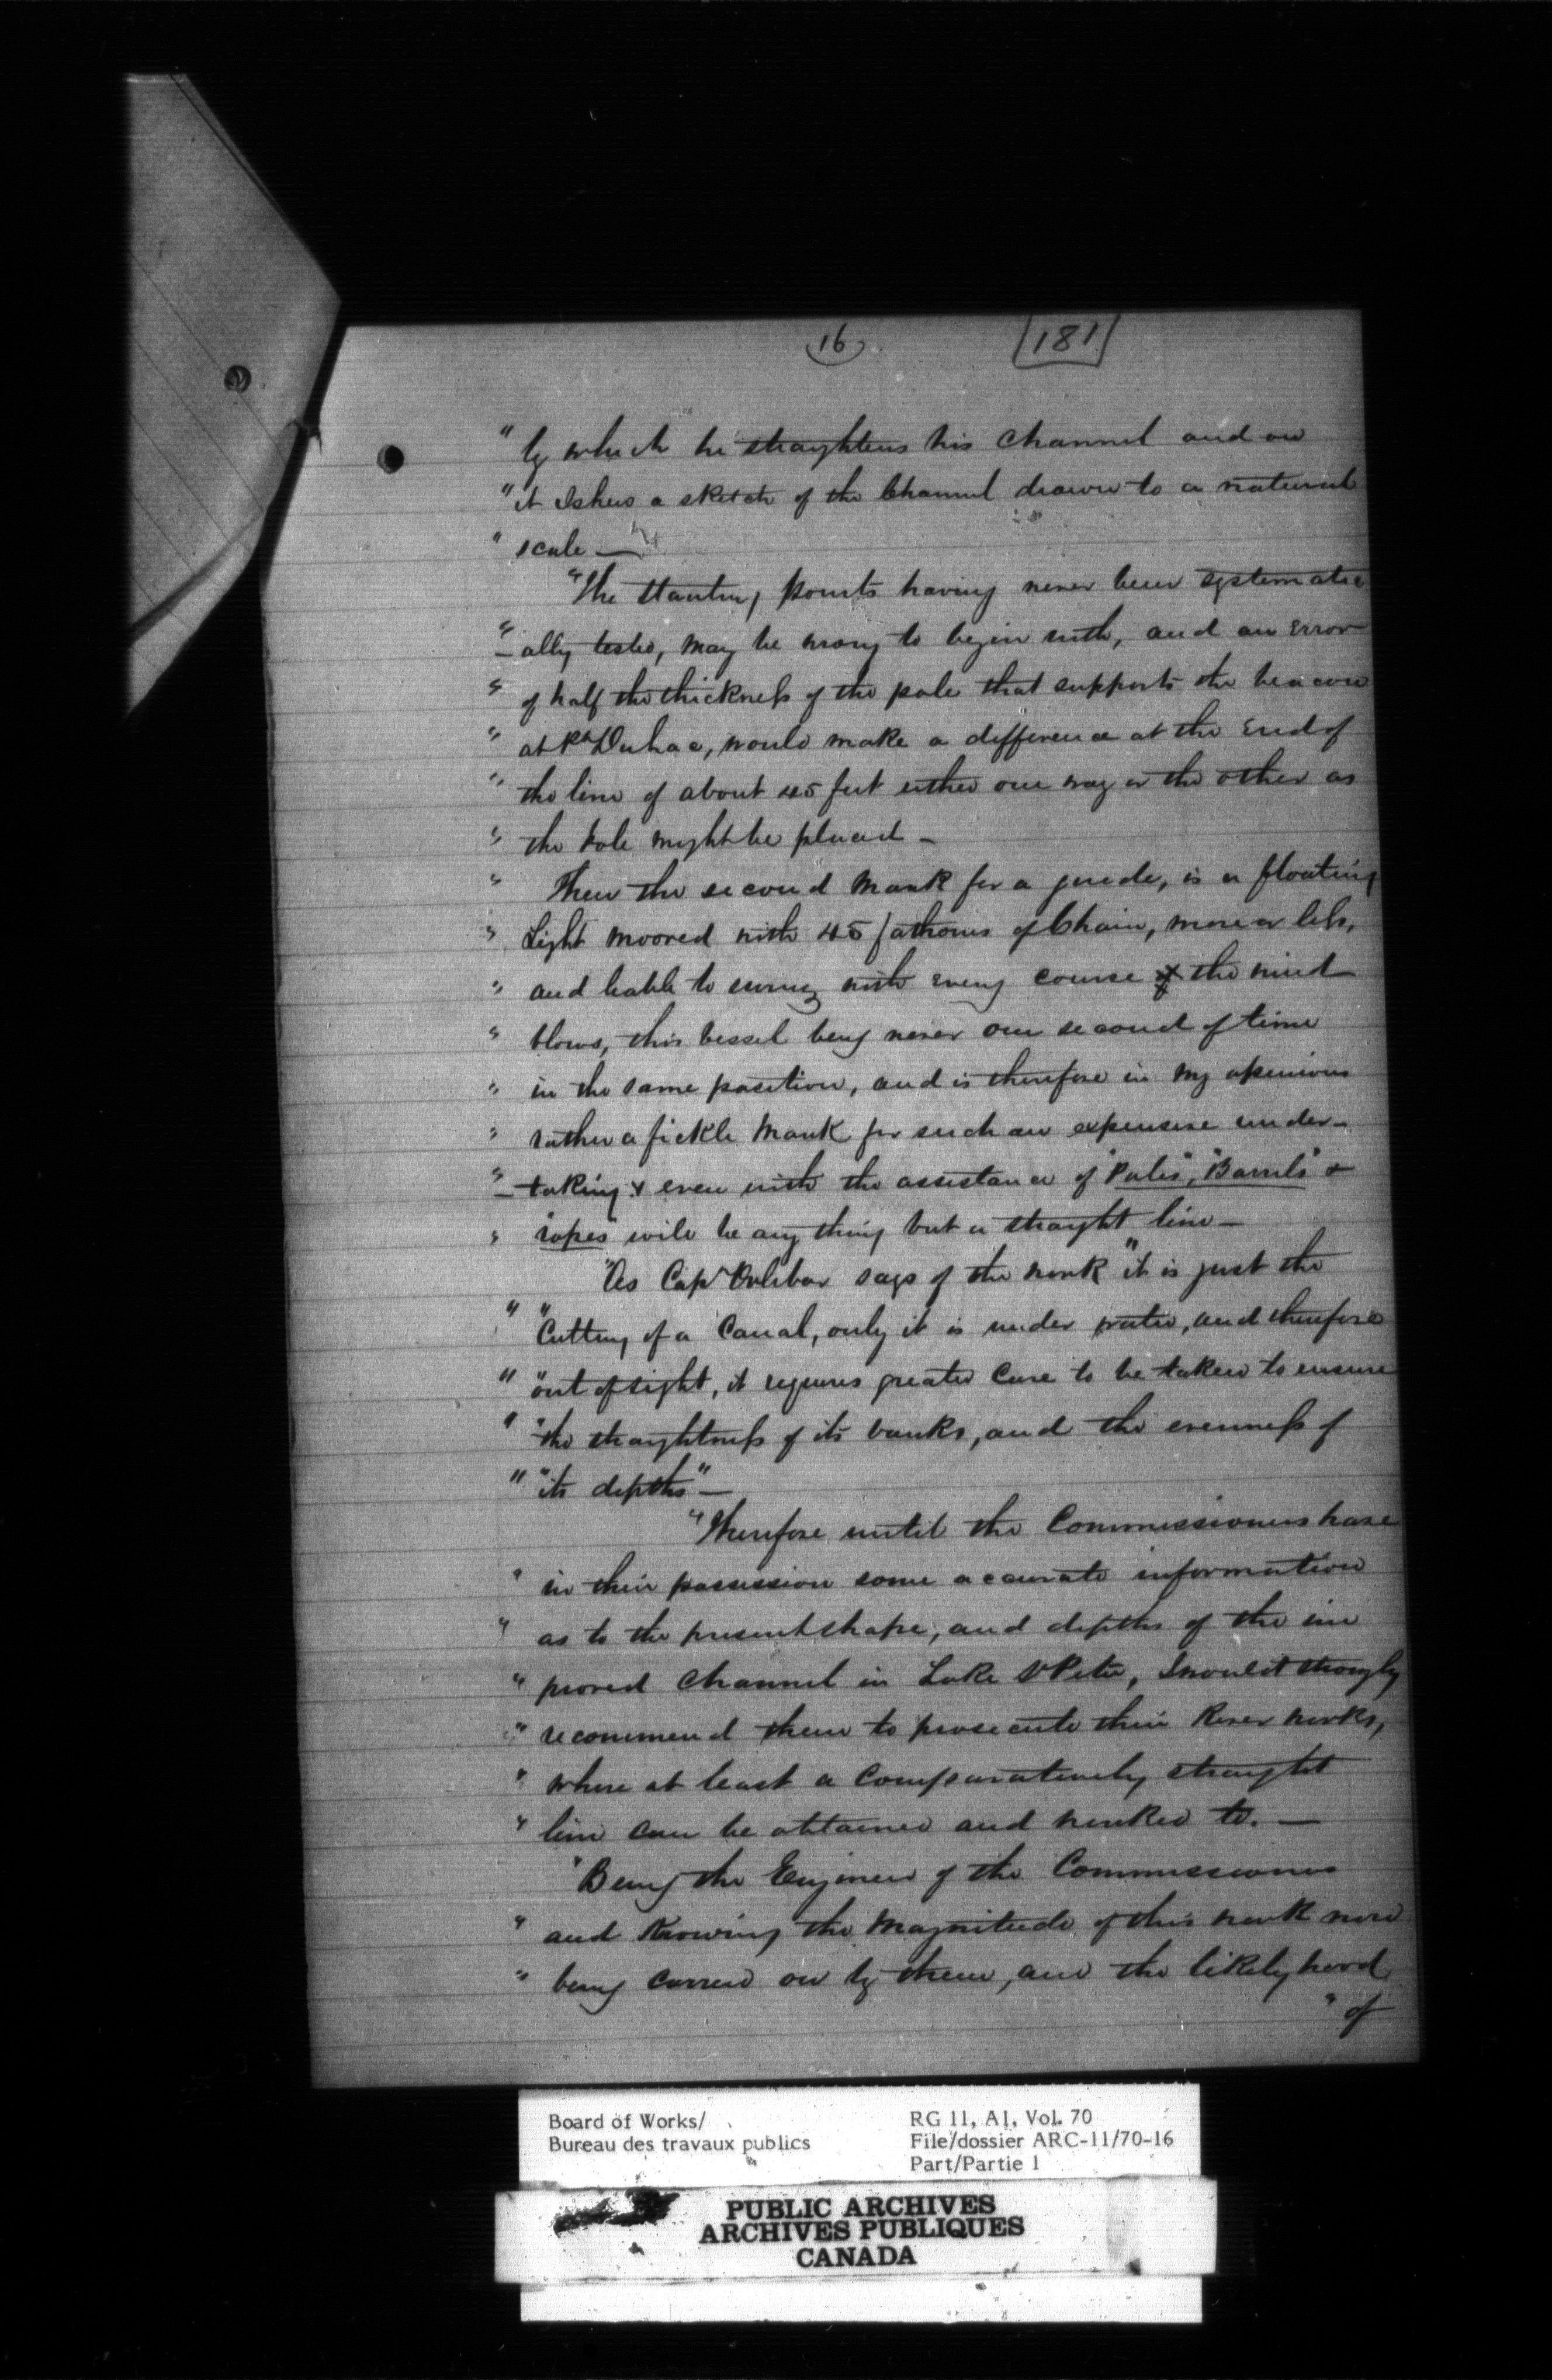 16
181
" by which he straightens his Channel and on
" it I shew a sketch of the Channel drawn to a natural
" scale —
"The starting points having never been systematic
" -ally tested, may be wrong to begin with, and an error
" of half the thickness of the pole that supports the beacon
" at Pt Duhac, would make a difference at the End of
" the line of about 45 feet either one way or the other as
" the pole might be placed —
" Then the second Mark for a guide, is a floating
" Light moored with 45 fathoms of Chain, more or less,
" and liable to swing with every course of the wind
" blows, this vessel being never one second of time
" in the same position, and is therefore in my opinion
" rather a fickle Mark for such an expensive under-
" -taking & even with the assistance of "Poles", "Barrels" &
" "ropes" will be any thing but a straight line —
"As Capt Orlebar says of the work "it is just the
" "Cutting of a Canal, only it is under water, and therefore
" "out of sight, it requires greater Care to be taken to ensure
" "the straightness of its banks, and the evenness of
" "its depths" —
"Therefore until the Commissioners have
" in their possession some accurate information
" as to the present shape, and depths of the im
" proved Channel in Lake St Peter, I would strongly
" recommend them to prosecute their River works,
" where at least a Comparatively straight
" line can be obtained and worked to. —
"Being the Engineer of the Commissioners
" and Knowing the Magnitude of this work now
" being carried on by them, and the likelyhood
" of
Board of Works/
Bureau des travaux publics
RG 11, A1, Vol. 70
File/dossier ARC-11/70-16
Part/Partie 1
PUBLIC ARCHIVES
ARCHIVES PUBLIQUES
CANADA